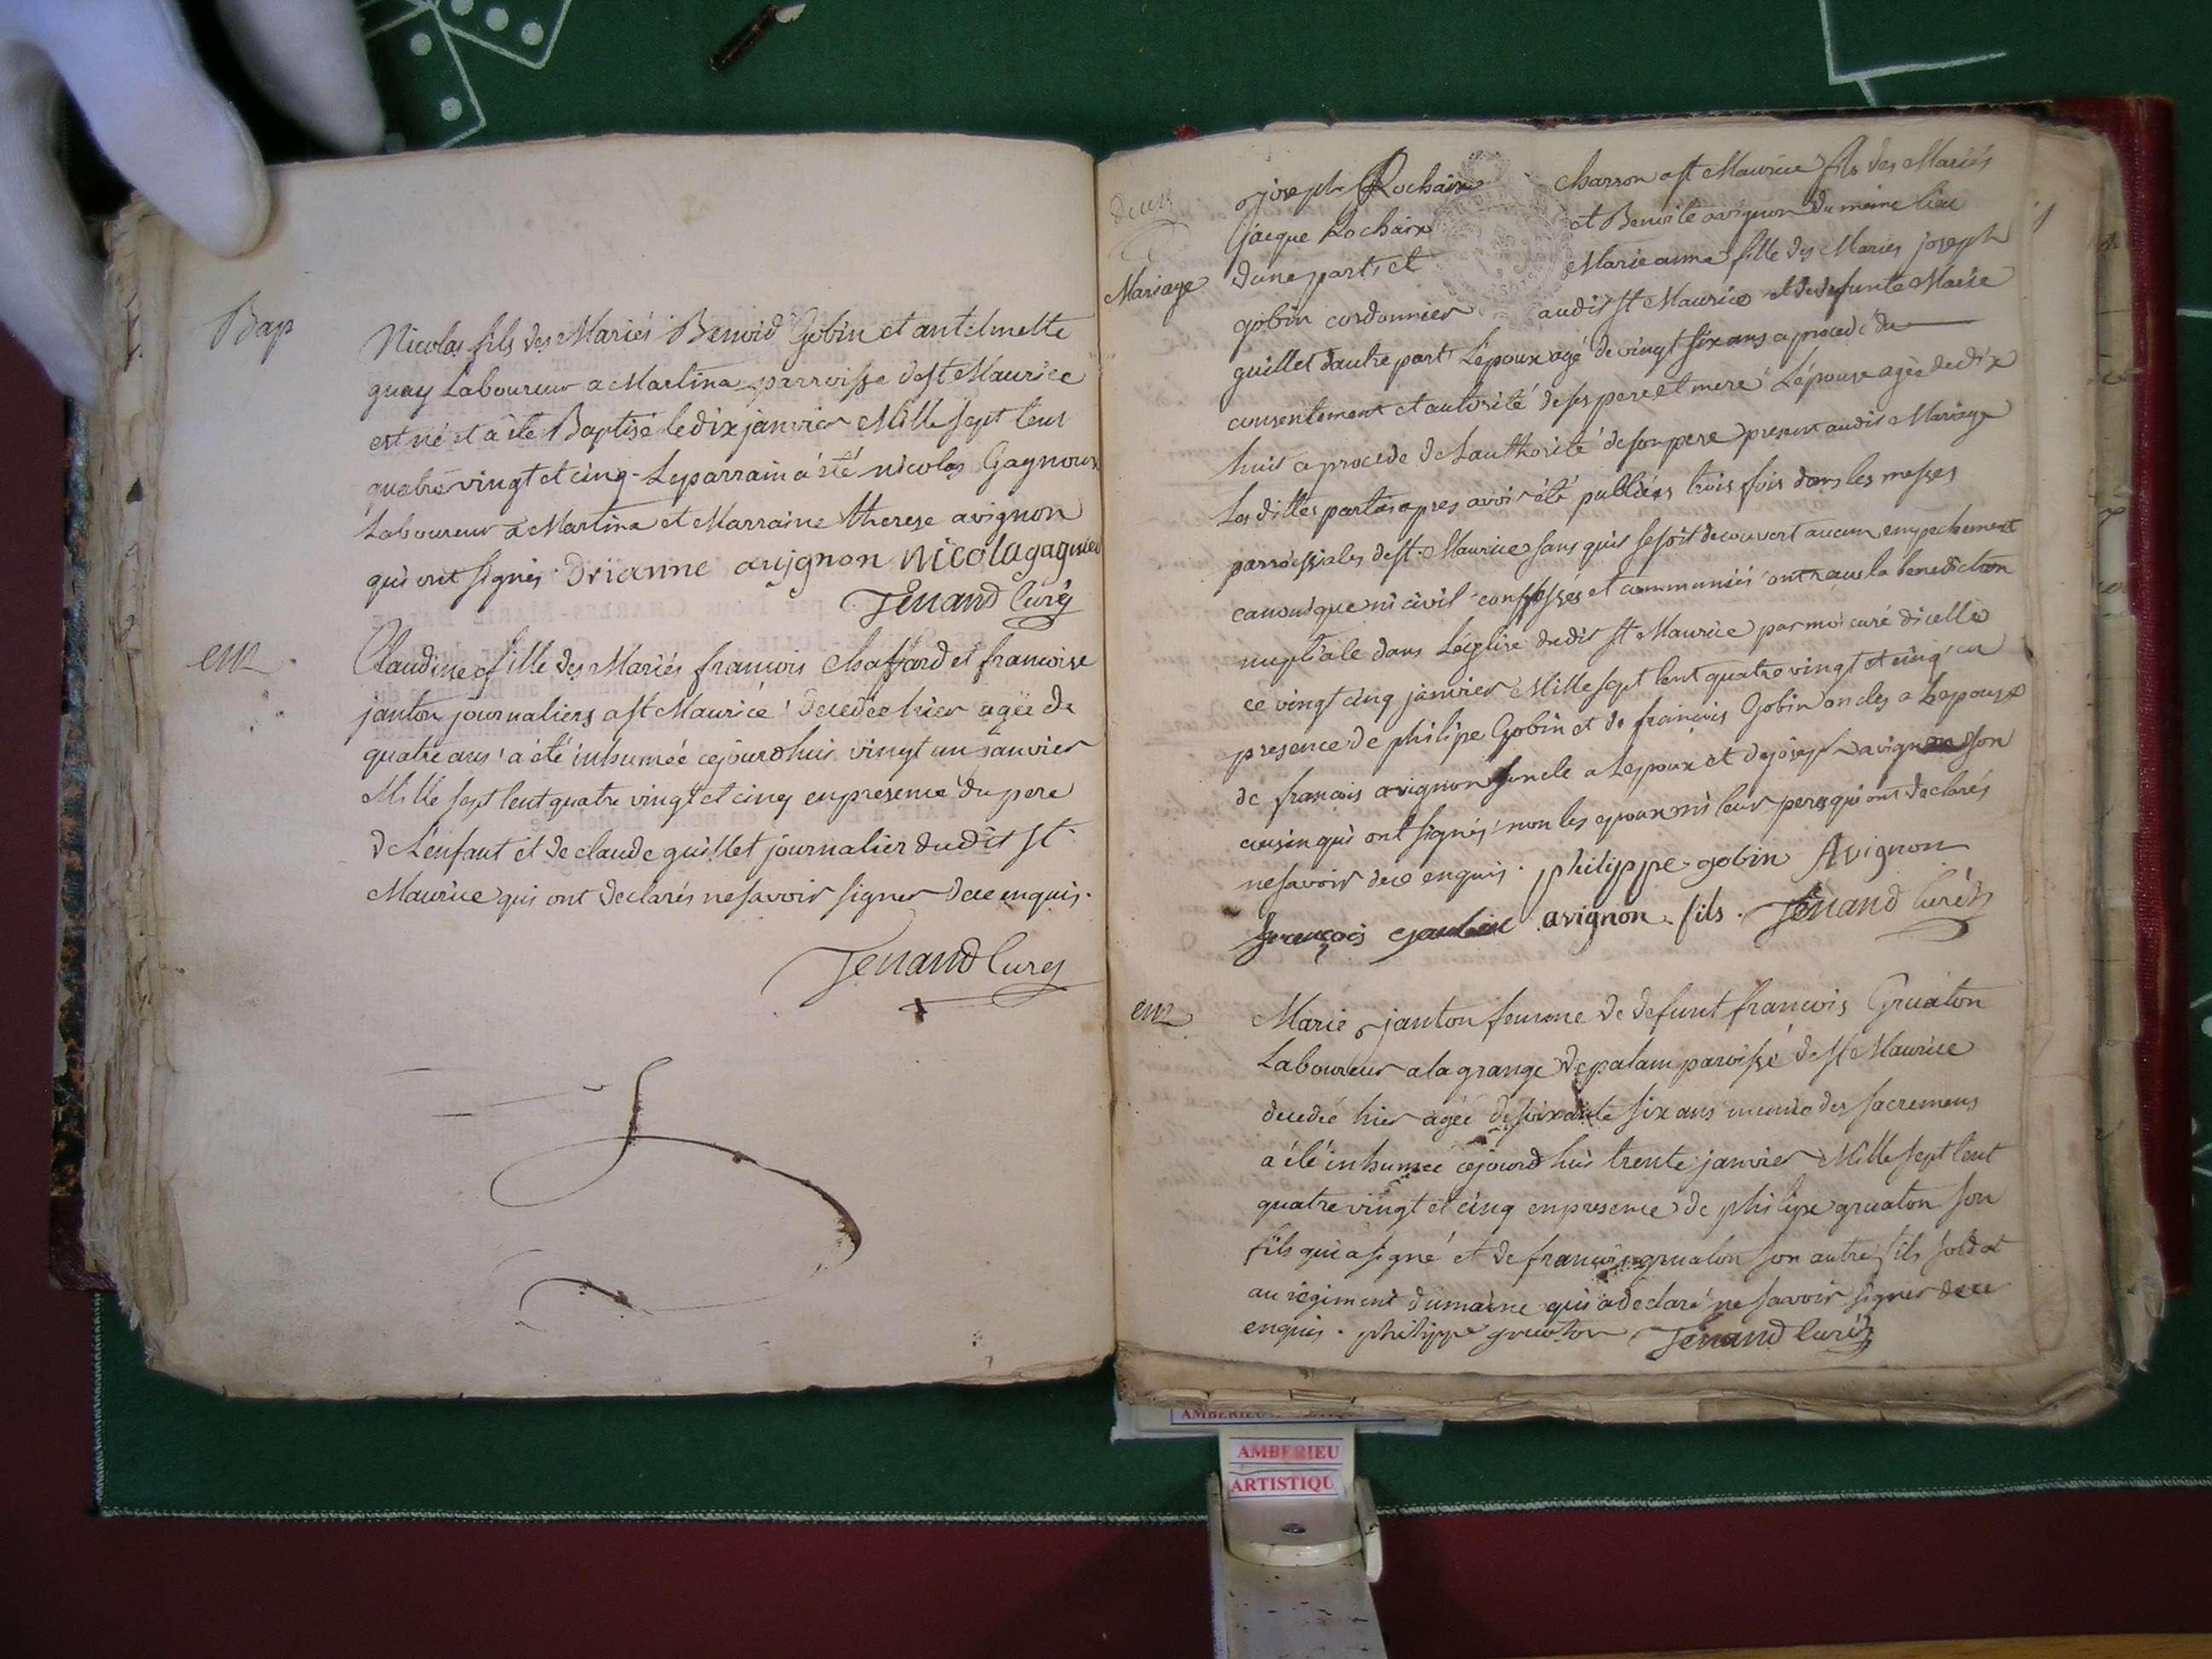 Bap
Nicolas fils des Mariés Benoid Gobin et antelmette
guay Laboureur a Martina parroisse de st Maurice
est né et a été Baptisé le dix janvier Mille sept Cent
quatre vingt et cinq - Le parrain a été nicolas Gagnoux
Laboureur a Martina et Marraine therese avignon
qui ont signés. Drianne avignon Nicola gagnieu
Tenand Curé
em
Claudine fille des Mariés francois Chaffard et francoise
janton journaliers a st Maurice decedée hier agée de
quatre ans a été inhumée cejourdhui vingt un janvier
Mille sept Cent quatre vingt et cinq en presence du pere
de Lenfant et de claude guillet journalier dudit st
Maurice qui ont declarés ne savoir signer de ce enquis.
Tenand Curé
deux
joseph Rochaix Charron a st Maurice fils des Mariés
jacque Rochaix et Benoite avignon du meme lieu
Mariage dune part, et Marie anne fille des Mariés joseph
gobin cordonnier audit st Maurice et de defunte Marie
guillet dautre part Lépoux agé de vingt six ans a procedé du
consentement et autorité de ses pere et mere Lépouse agée de dix
huit a procede de Lauthorité de son pere present audit Mariage
Les dittes parties apres avoir été publiées trois fois dans les messes
parroissiales de st. Maurice sans quil se soit decouvert aucun empechement
canonique ni civil confessés et communiés ont reçus la benediction
nuptiale dans Léglise dudit st Maurice par moi curé dicelle
ce vingt cinq janvier Mille sept Cent quatre vingt et cinq en
presence de philipe Gobin et de francois Gobin oncles a Lepouse
de francois avignon oncle a Lepoux et de joseph avignon son
cousin qui ont signés non les epoux ni leur peres qui ont declarés
ne savoir de ce enquis. philippe gobin Avignon
françois gaubin avignon fils. Tenand Curé
em
Marie janton femme de defunt francois Gruaton
Laboureur a la grange de palam paroisse de st Maurice
decedée hier agée de soixante six ans munie des sacremens
a été inhumée cejourdhui trente janvier Mille sept Cent
quatre vingt et cinq en presence de philipe gruaton son
fils qui a signé et de francois gruaton son autre fils soldat
au regiment dumaine qui a declaré ne savoir signer de ce
enquis. philippe gruaton Tenand Curé
AMBERIEU
ARTISTIQU